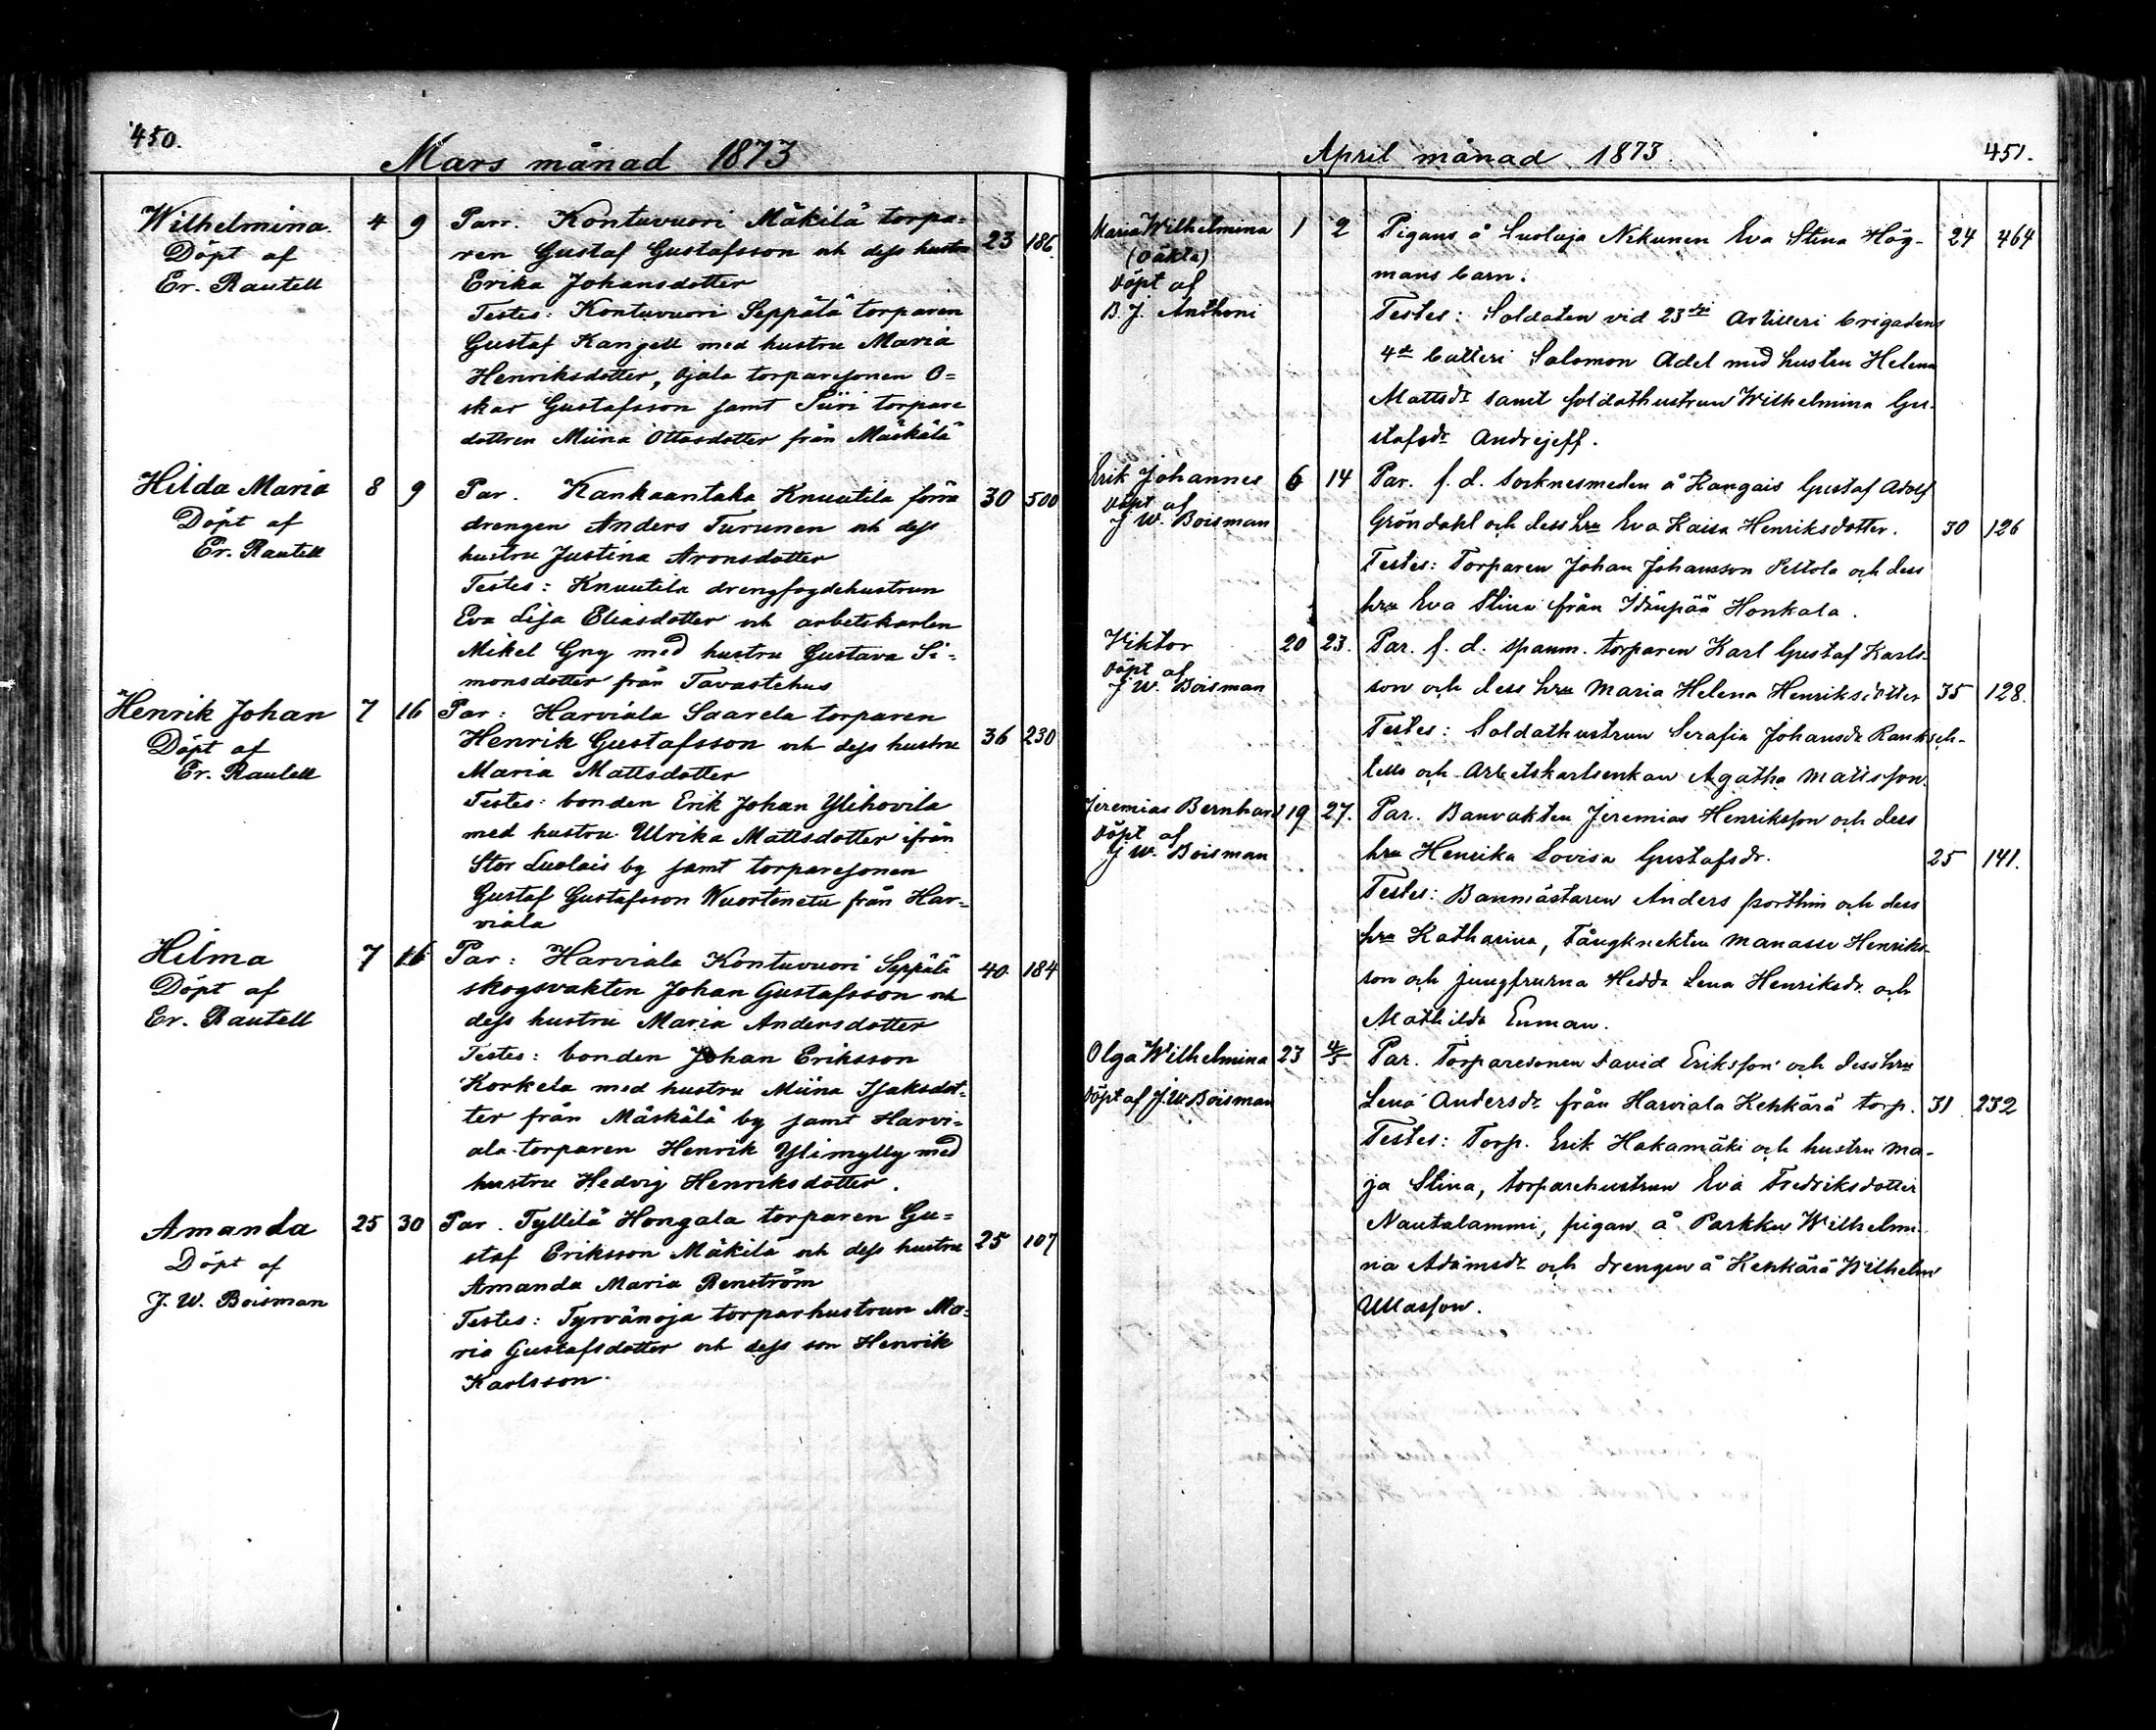 450.
Mars månad 1873
Wilhelmina. 4 9 Parr. Kontuvuori Mäkilä torpa=
Döpt af ren Gustaf Gustafsson och dess hustru 23 186.
Er. Rautell Erika Johansdotter
Testes: Kontuvuori Seppätä torparen
Gustaf Kangell med hustru Maria
Henriksdotter, Ojala torparesonen O=
skar Gustafsson samt Piiri torpare
dottren Miina Ottosdotter från Mäskälä
Hilda Maria 8 9 Par. Kankaantaka Knuutila förra 30 500
Döpt af drengen Anders Turunen och dess
Er. Rautell hustru Justina Aronsdotter
Testes: Knuutila drengfogdehustrun
Eva Lisa Eliasdotter och arbetskarlen
Mikel Gny med hustru Gustava Si=
monsdotter från Tavastehus
Henrik Johan 7 16 Par: Harviala Saarela torparen
Döpt af Henrik Gustafsson och dess hustru 36 230
Er. Rautell Maria Mattsdotter
Testes: bonden Erik Johan Ylihovila
med hustru Ulrika Mattsdotter ifrån
Stor Luolais by samt torparesonen
Gustaf Gustafsson Wuortenetu från Har=
viala
Hilma 7 16 Par: Harviala Kontuvuori Seppälä 40 184
Döpt af skogsvakten Johan Gustafsson och
Er. Rautell dess hustru Maria Andersdotter
Testes: bonden Johan Eriksson
Korkela med hustru Miina Isaksdot=
ter från Mäskälä by samt Harvi=
ala torparen Henrik Ylimylly med
hustru Hedvig Henriksdotter.
Amanda 25 30 Par. Tyllilä Hongala torparen Gu=
Döpt af staf Eriksson Mäkilä och dess hustru 25 107
J. W. Boisman Amanda Maria Renström
Testes: Tyrvänoja torparhustrun Ma=
ria Gustafsdotter och dess son Henrik
Karlsson.
April månad 1873. 451.
Maria Wilhelmina 1 2 Pigans å Luoluja Nikunen Eva Stina Hög- 24 464
(oäkta) mans barn.
Döpt af
B. J. Anthoni Testes: Soldaten vid 23dje Artilleri brigadens
4de batteri Salomon Adel med hustru Helena
Mattsdr samt soldathustrun Wilhelmina Gu-
stafsdr Andrejeff.
Erik Johannes 6 14 Par. f. d. socknesmeden å Kangais Gustaf Adolf
Döpt af
J. W. Boisman Gröndahl och dess hru Eva Kaisa Henriksdotter. 30 126
Testes: Torparen Johan Johansson Peltola och dess
hru Eva Stina från Idänpää Honkala.
Viktor 20 23. Par. f. d. spanm. torparen Karl Gustaf Karls-
Döpt af
J W. Boisman son och dess hru Maria Helena Henriksdotter 35 128.
Testes: Soldathustrun Serafia Johansdr
och Arbetskarlsenkan Agatha Mattsson.
Jeremias Bernhard 19 27. Par. Banvakten Jeremias Henriksson och dess
Döpt af
J W. Boisman hru Henrika Lovisa Gustafsdr. 25 141.
Testes: Banmästaren Anders och dess
hru Katharina, Fångknekten Manasse Henriks-
son och jungfrurna Hedda Lena Henriksdr och
Mathilda Enman.
Olga Wilhelmina 23 4/5 Par. Torparesonen David Eriksson och dess hru
Döpt af J. W. Boisman Lena Andersdr från Harviala Kehkärä torp. 31 232
Testes: Torp. Erik Hakamäki och hustru Ma-
ja Stina, torparehustrun Eva Fredriksdotter
Nautalammi, pigan å Parkku Wilhelmi-
na Adamsdr och drengen å Kehkärä Wilhelm
Ullasson.